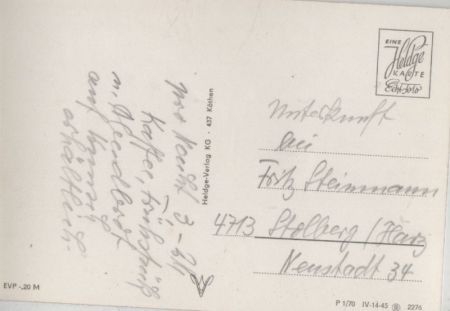 pro Nacht 3,- M
Kaffee, Frühstück
u. Abendbrot
auf Wunsch
erhältlich.
Heldge-Verlag KG · 437 Köthen
EINE
Heldge
KARTE
Echt Foto
Unterkunft
bei
Fritz Steinmann
4713 Stolberg / Harz
Neustadt 34
EVP -,20 M
P 1/70 IV-14-45 2276